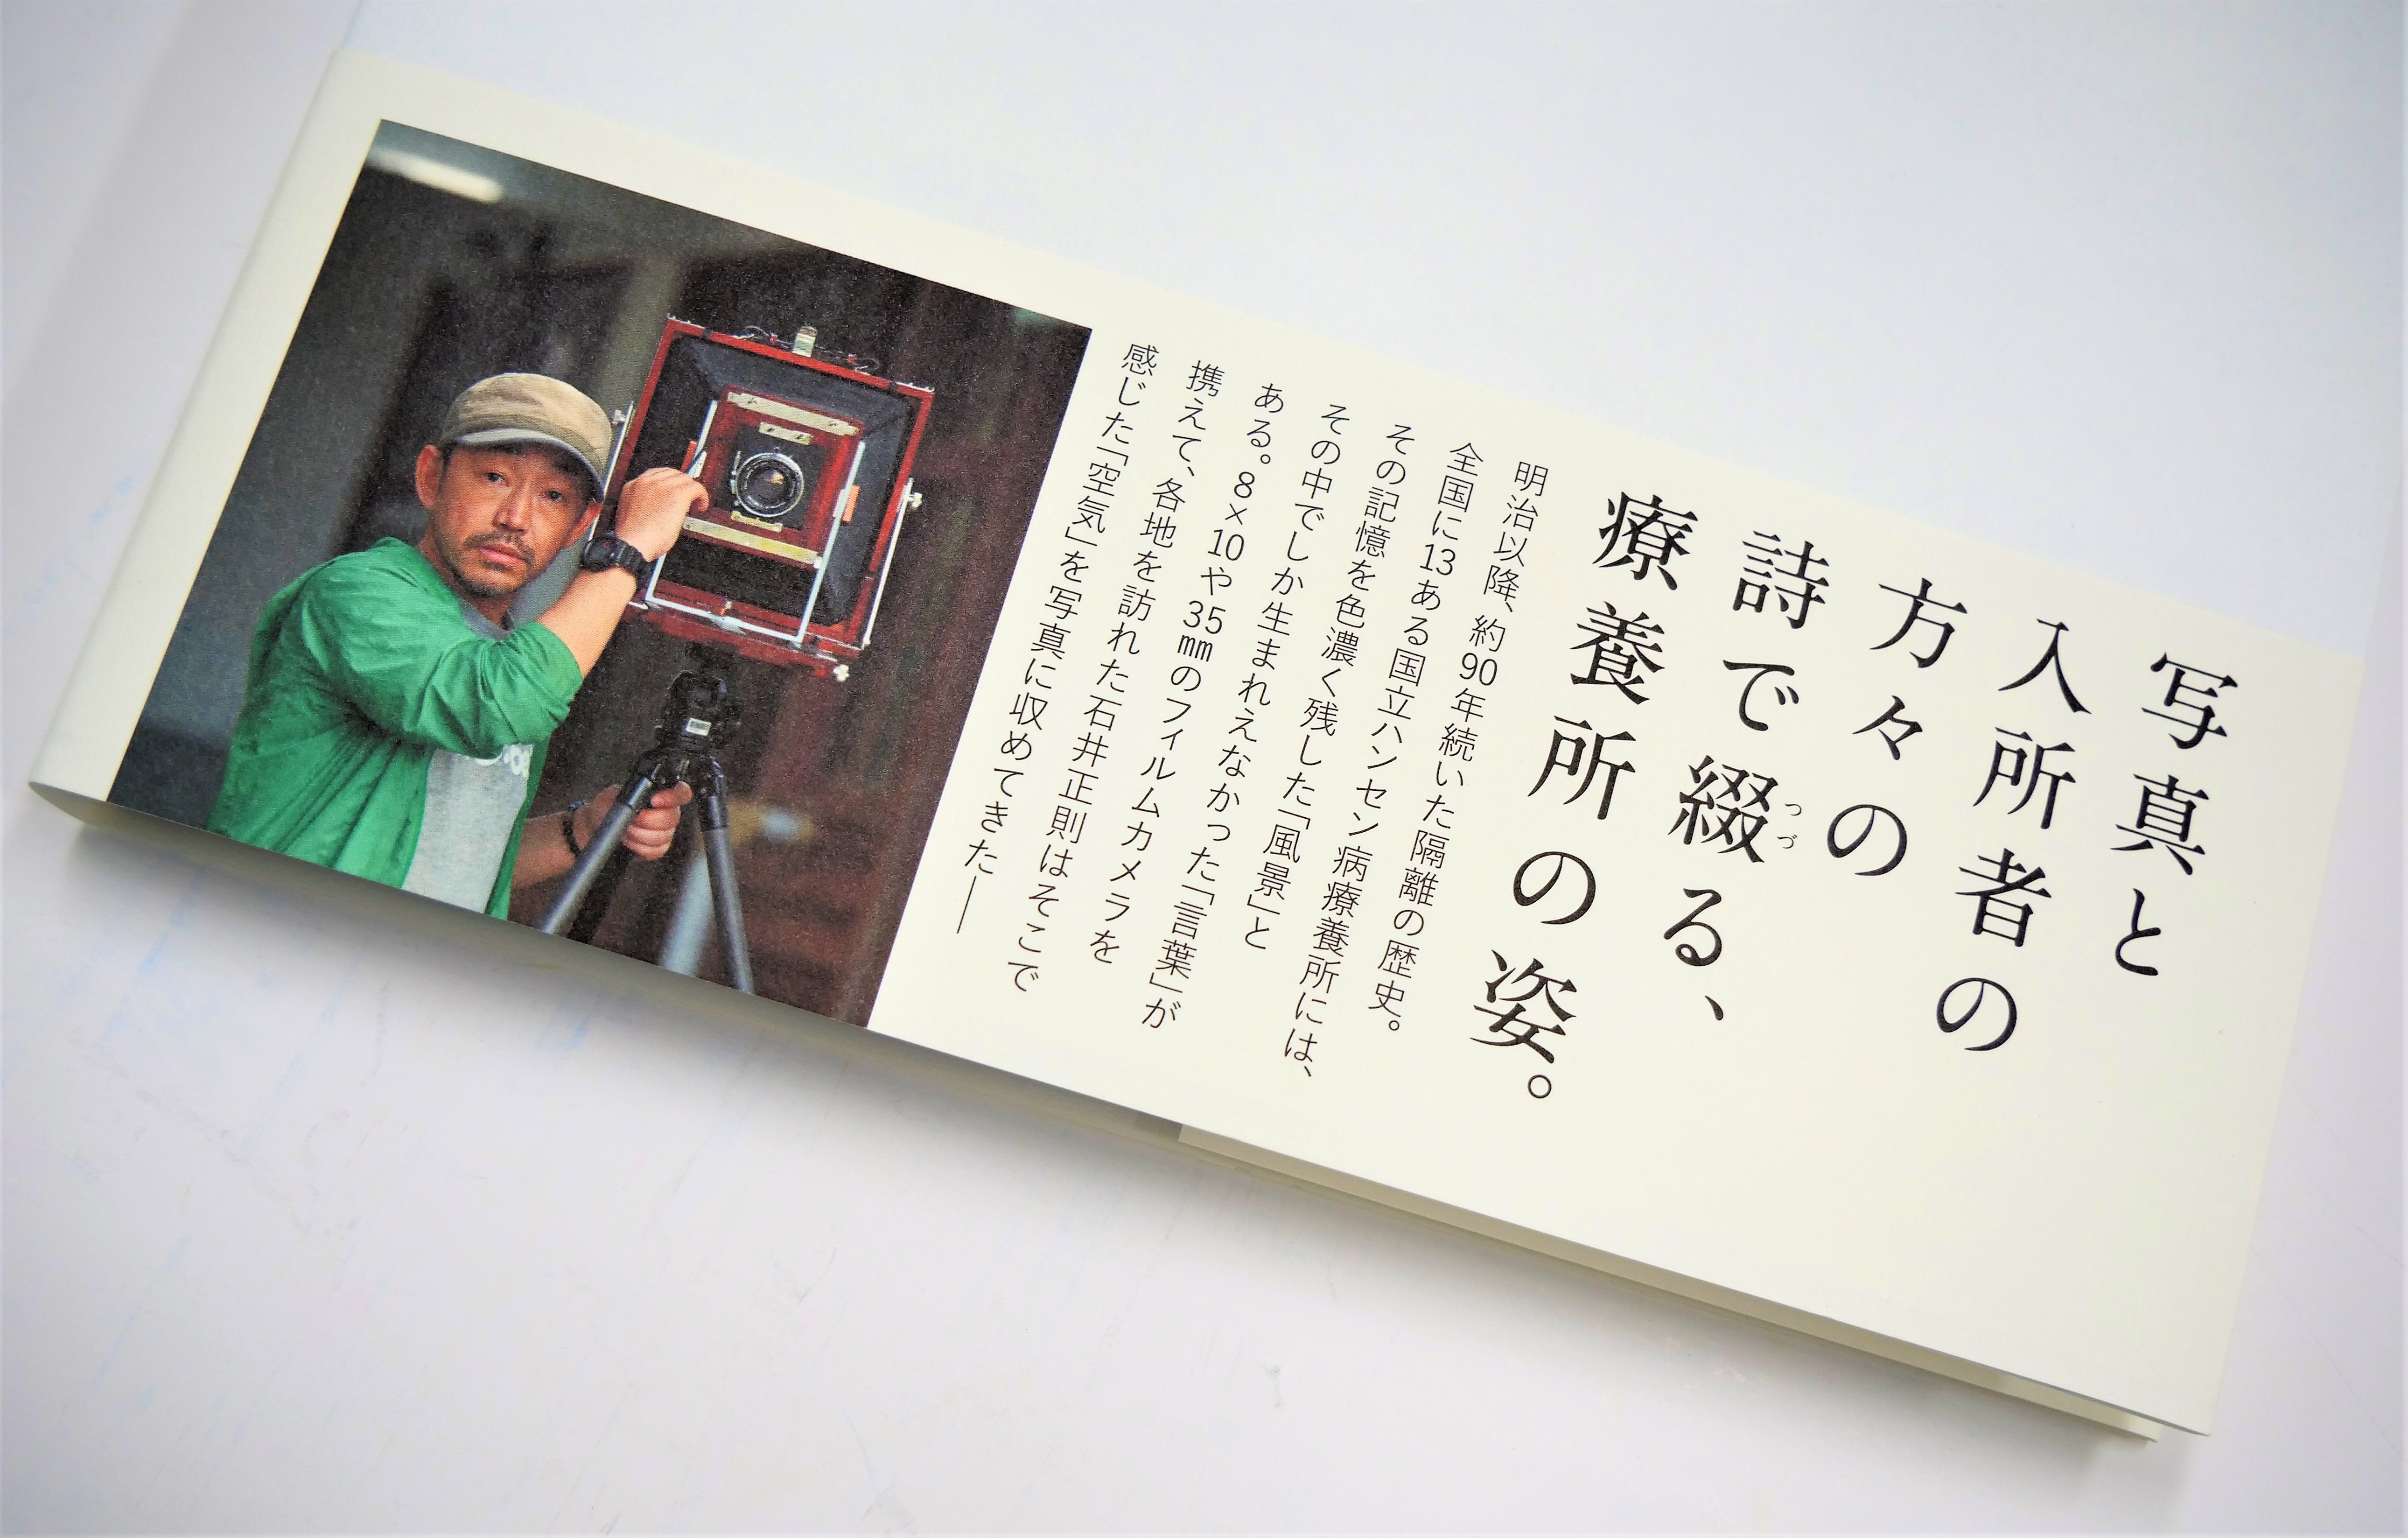 写真と
入所者の
方々の
詩で綴る、
つづ
療養所の姿。
明治以降、約90年続いた隔離の歴史。
全国に13ある国立ハンセン病療養所には、
その記憶を色濃く残した「風景」と
その中でしか生まれえなかった「言葉」が
ある。8×10や35㎜のフィルムカメラを
携えて、各地を訪れた石井正則はそこで
感じた「空気」を写真に収めてきた——